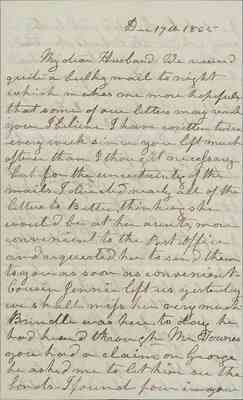 Dec 17th 1865
My dear Husband We received
quite a bulky mail to night
which makes me more hopeful
that some of our letters may reach
you I believe I have written twice
every week since you left much
oftener than I thought necessary
but for the uncertainty of the
mails I directed nearly all of the
letters to Bettie thinking she
would be at her aunts, more
convenient to the Post Office
and requested her to send them
to you as soon as convenient
Cousin Jennie left us yesterday
we shall miss her very much
Brindle was here to day he
had heard through Mr Downes
you had a claim on George
he asked me to let him see the
bonds I found four in your